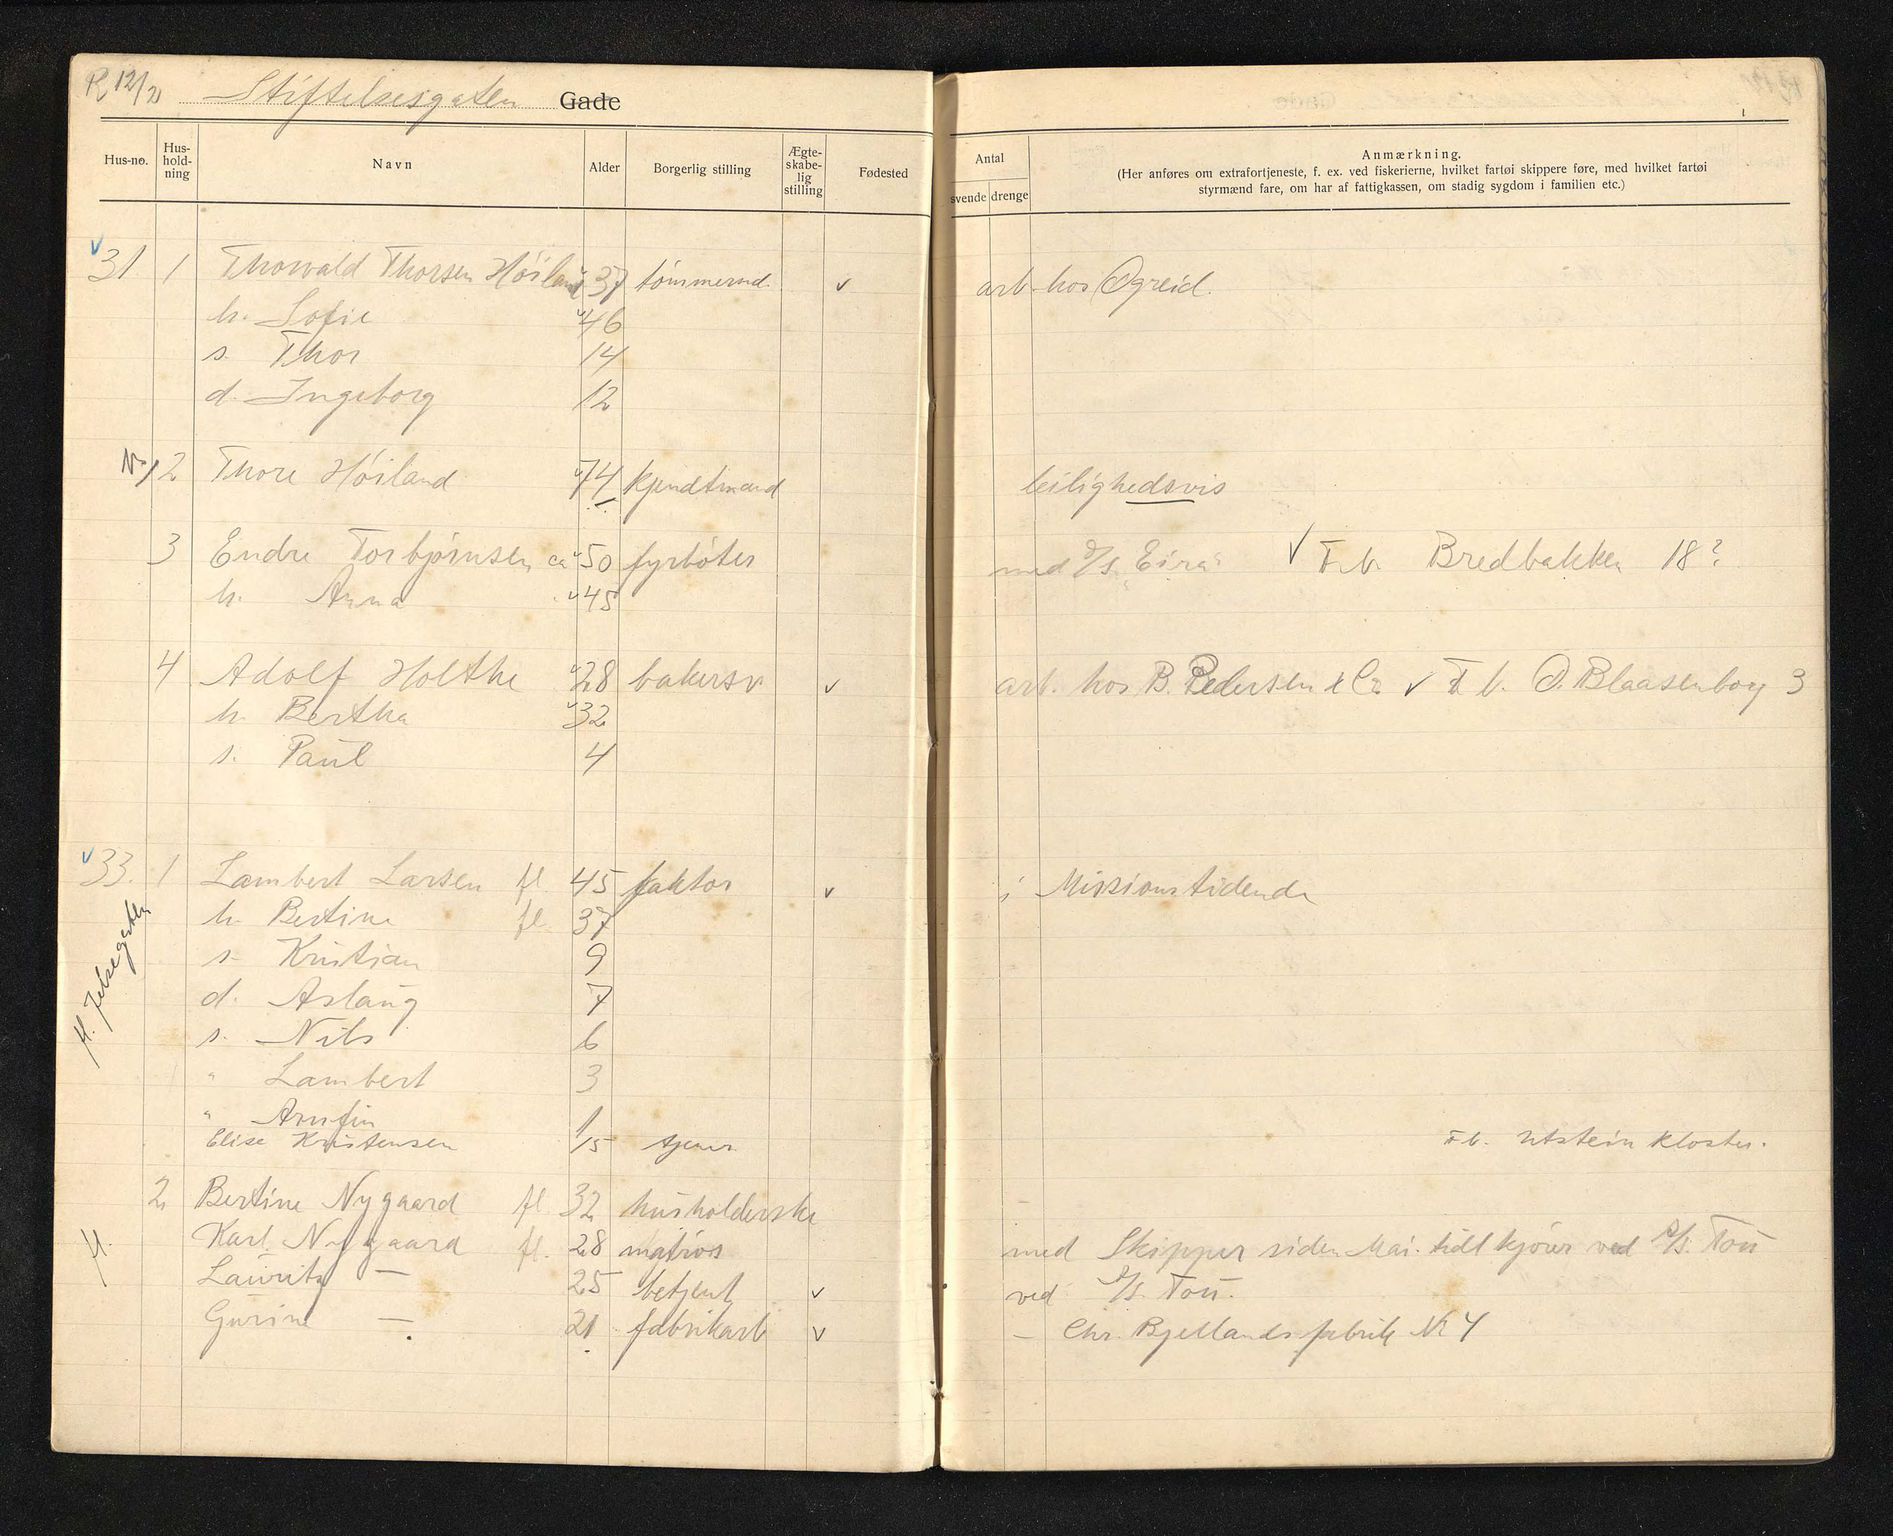 R 12/2 Stiftelsesgaten Gade
Hus-no. Hus-hold-ning Navn Alder Borgerlig stilling Ægte-skabe-lig stilling Fødested Antal svende drenge Anmærkning.
(Her anføres om extrafortjeneste, f. ex. ved fiskerierne, hvilket fartøi skippere føre, med hvilket fartøi
styrmænd fare, om har af fattigkassen, om stadig sygdom i familien etc.)
31 1 Thorvald Thorsen Høiland 37 tømmermd. v arb. hos Ogreid.
h. Sofie 46
s. Thor 14
d. Ingeborg 12
2 Thore Høiland 74 kjendtmand leilighedsvis
3 Endre Torbjørnsen ca 50 fyrbøter med D/S "Eira" v F.b. Bredbakken 18?
h. Anna 45
4 Adolf Holthe 28 bakersv v arb. hos B. Pedersen & Co v F.b. Ø. Blaasenborg 3
h. Bertha 32
s. Paul 4
33. 1 Lambert Larsen fl. 45 faktor v i Missionstidende
h. Bertine fl. 37
s. Kristian 9
d. Aslaug 7
s. Nils 6
" Lambert 3
" Arnfin 1
Elise Kristensen 15 tjener F.b. Utstein Kloster.
H. Jelsegaten
2 Bertine Nygaard fl. 32 husholderske
H. Karl Nygaard fl. 28 matros med Skipper siden Mai. tidl kjører ved A/S. Tou
Lauritz — 25 betjent v ved A/S. Tou.
Gurine — 21 fabrikarb v — Chr. Bjellands fabrik No 4